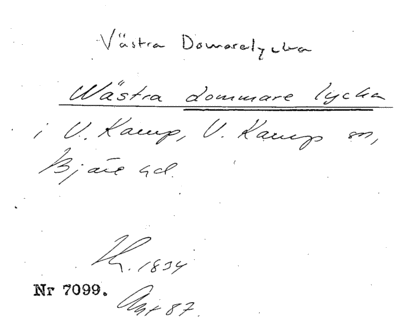 Västra Domarelycka
Wästra dommare lycka
i V. Karup, V. Karup sn,
Bjäre hd.
1834
Nr 7099.
87.